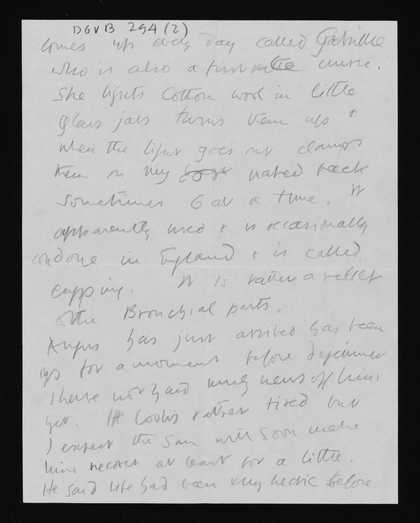 DGVB 254 (2)
comes up every day called Gabrielle
who is also a first rate nurse.
She lights cotton wool in little
glass jars turns them up &
when the light goes out clamps
them on my naked back
sometimes 6 at a time. It
apparently used & is occasionally
done in England & is called
cupping. It is rather a relief
to the Bronchial parts.
Angus has just arrived has been
up for a moment before dejeuner
I have not had much news of him
yet. He looks rather tired but
I expect the sun will soon make
him recover at least for a little.
He said life had been very hectic before